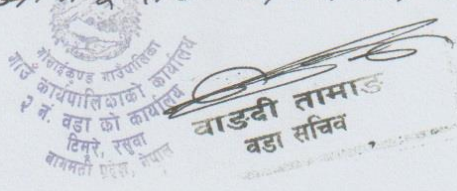 गोसाईकुण्ड गाउँपालिका
गाउँ कार्यपालिकाको कार्यालय
२ नं. वडा को कार्यालय
टिमुरे, रसुवा
बागमती प्रदेश, नेपाल
वाङदी तामाङ
वडा सचिव